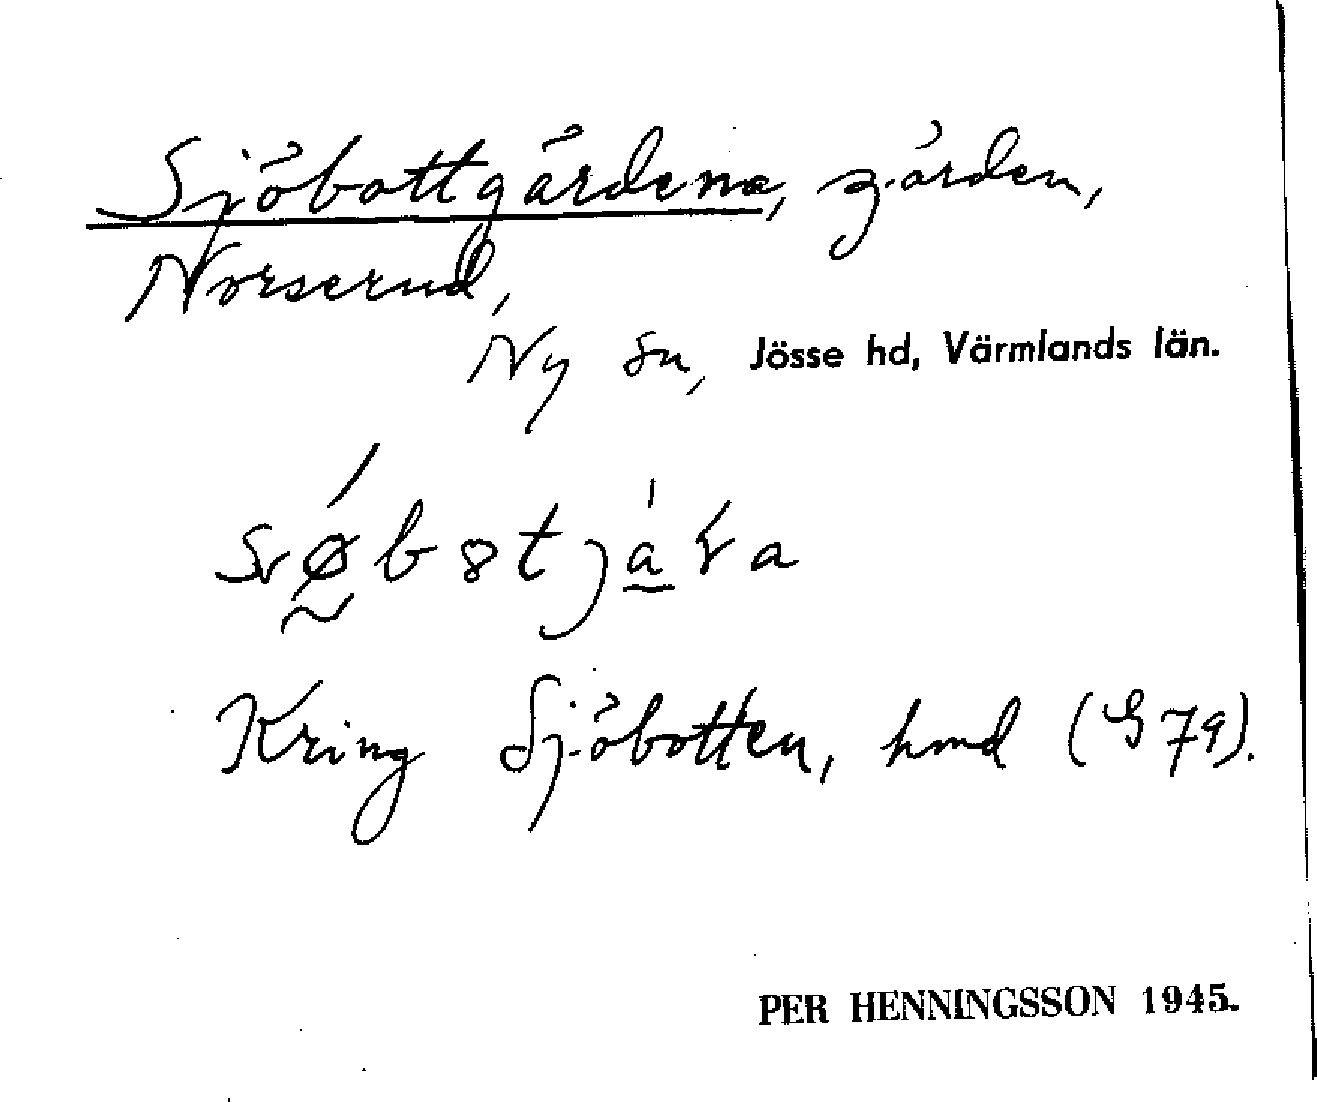 Sjöbottgårdena, gärden,
Norserud,
Ny sn, Jösse hd, Värmlands län.
Kring Sjöbotten, hmd (G 79).
PER HENNINGSSON 1945.